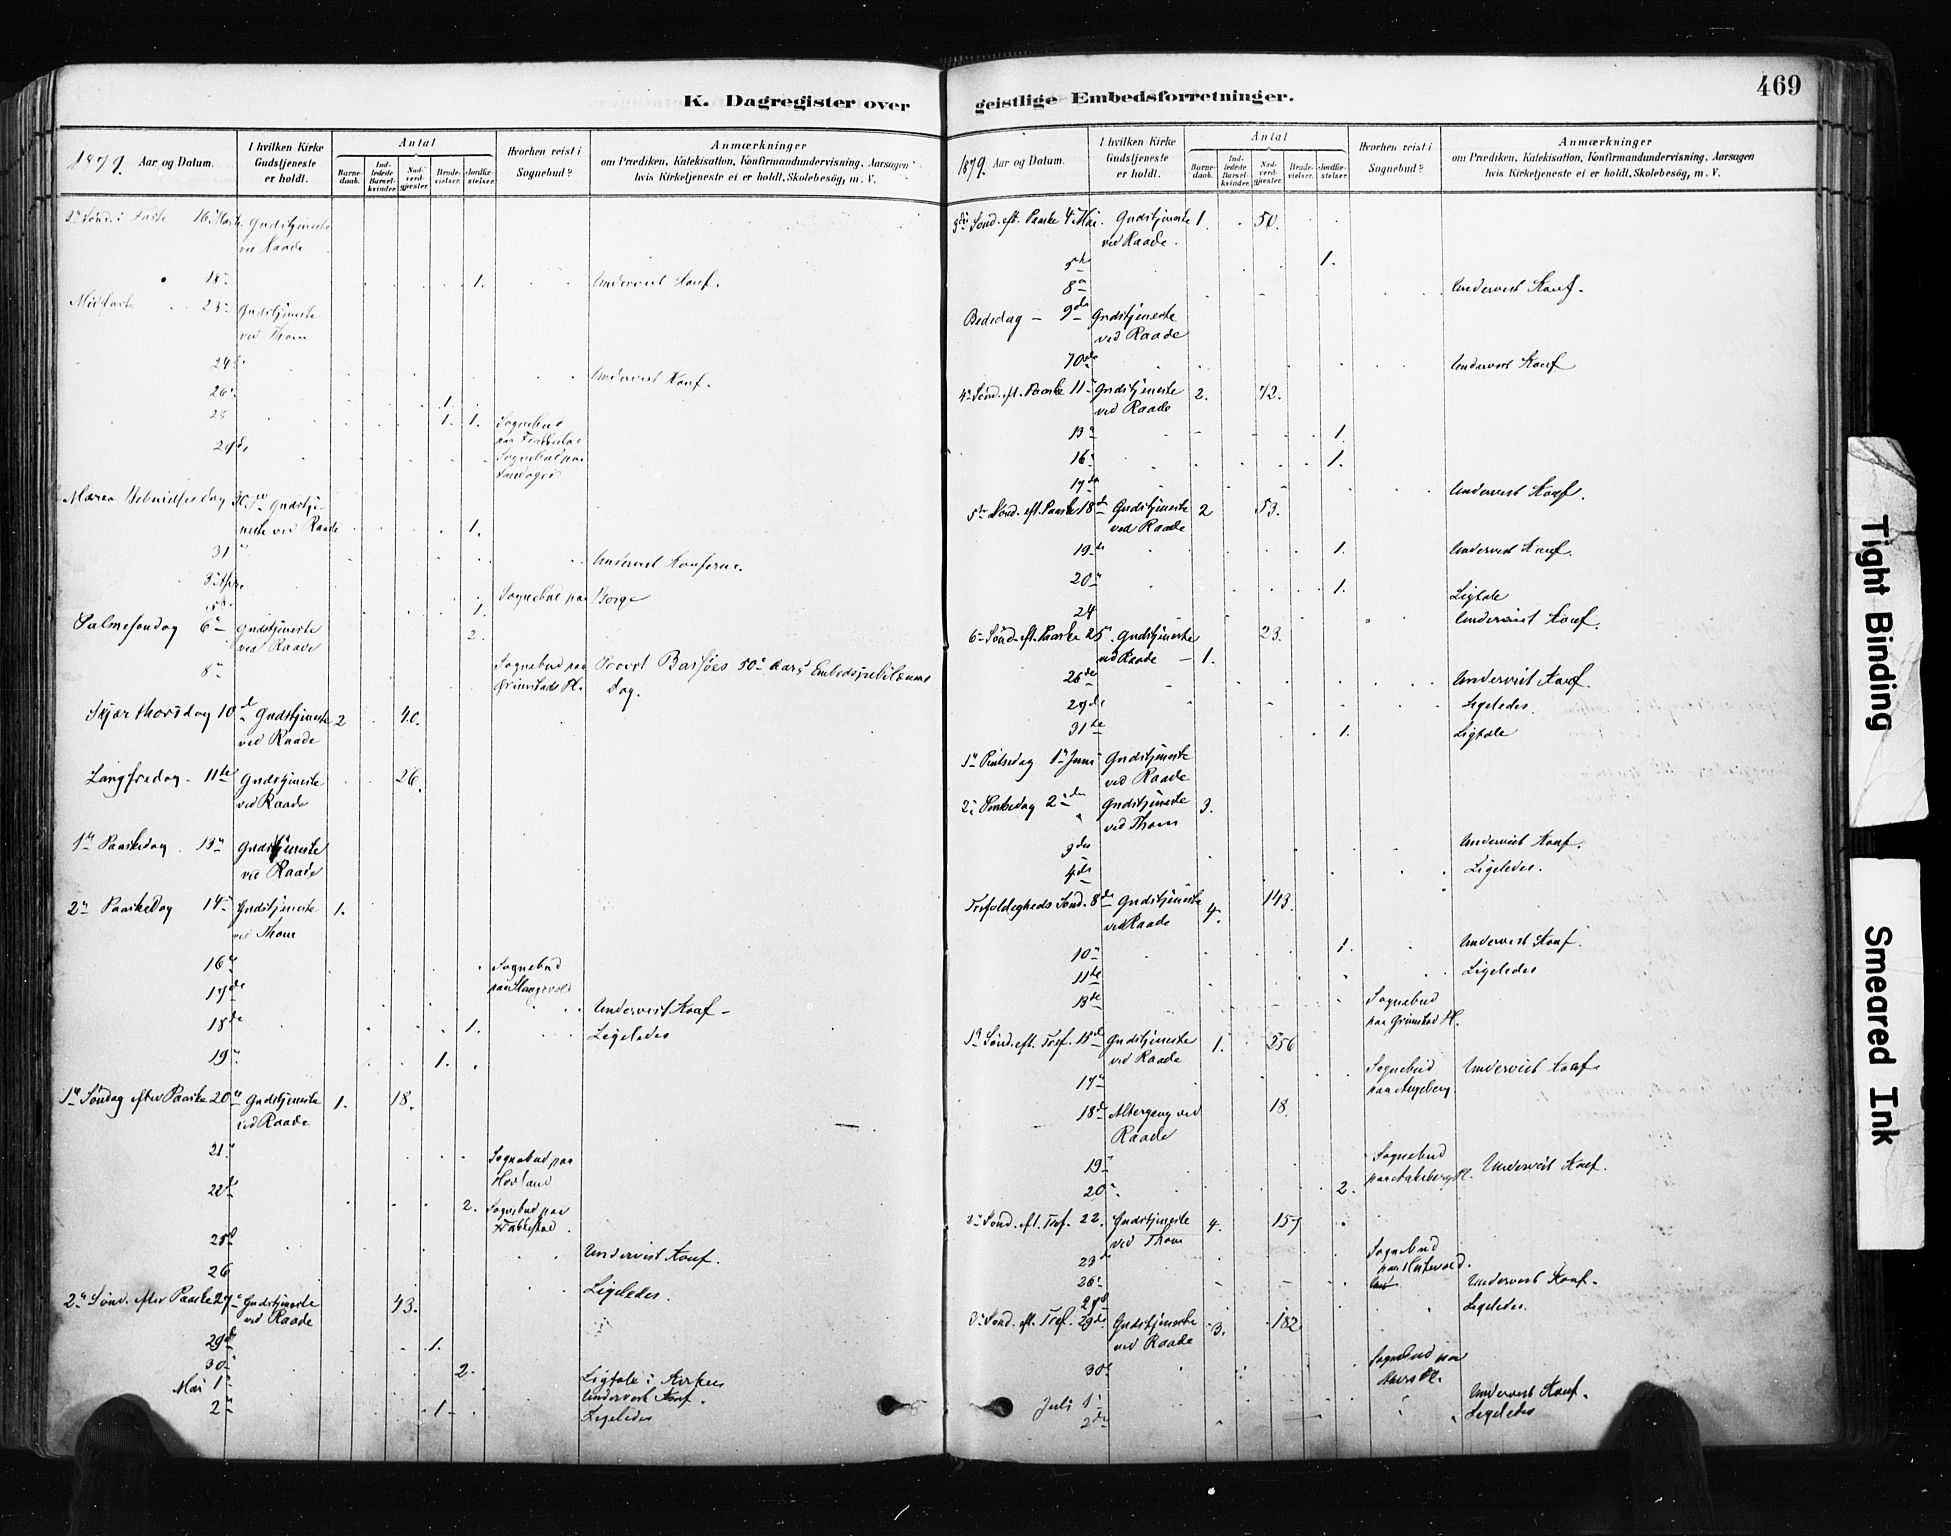 K. Dagregister over
1879. Aar og Datum.
I hvilken Kirke Gudstjeneste er holdt.
Antal
Barnedaab.
Indledede Barselkvinder.
Nadverdgjæster
Brudevielser.
Jordfæstelser.
Hvorhen reist i Sognebud?
Anmærkninger
om Prædiken, Katekisation, Konfirmandundervisning, Aarsagen
hvis Kirketjeneste ei er holdt, Skolebesøg, m. V.
3die Sønd. i Faste 16 Marts Gudstjeneste
ved Raade
18 1. Undervist Konf.
Midfaste 23 Gudstjeneste
ved Thom
24 Undervist Konf.
26 1.
1. 1. Sognebud
paa
Sognebud paa
Mariæ Bebudelsesdag 30 Gudstje-
neste ved Raade 1.
31 Undervist Konferne.
3 Apr. Sognebud paa Borge
5 1.
Palmesøndag 6 Gudstjeneste 2.
ved Raade
8 Sognebud paa Provst Barføes 50 Aars Embedsjubilæums
Grimstads Pl. dag.
Skjærthorsdag 10 Gudstjeneste 2 40.
ved Raade
Langfredag 11te Gudstjeneste 26.
ved Raade
1ste Paaskedag 13 Gudstjeneste
ved Raade
2den Paaskedag 14 Gudstjeneste 1.
ved Thom
16 Sognebud
paa
17de Undervist Konf
18de 1. Ligeledes
19 1.
1ste Søndag efter Paaske 20 Gudstjeneste 1. 18.
ved Raade
21 Sognebud paa
Hovland
22de 2. Sognebud paa
25 Undervist Konf.
26 Ligeledes.
2den Sønd. efter Paaske 27 Gudstjeneste 43.
ved Raade
29de 1.
30 2.
Mai 1 Ligtale i Kirken
Undervist Konf.
2 1 Ligeledes
geistlige Embedsforretninger.
469
1879. Aar og Datum.
I hvilken Kirke Gudstjeneste er holdt.
Antal
Barnedaab.
Indledede Barselkvinder.
Nadverdgjæster
Brudevielser.
Jordfæstelser.
Hvorhen reist i Sognebud?
Anmærkninger
om Prædiken, Katekisation, Konfirmandundervisning, Aarsagen
hvis Kirketjeneste ei er holdt, Skolebesøg, m. V.
3die Sønd. eft. Paaske 4 Mai. Gudstjeneste 1. 50.
ved Raade.
5te 1.
8 Undervist Konf.
Bededag 9de Gudstjeneste
ved Raade
10de Undervist Konf
4 Sønd. eft. Paaske 11 Gudstjeneste 2. 72.
ved Raade
13 1.
16 1.
17de Undervist Konf.
5te Sønd. eft. Paaske 18 Gudstjeneste 2 53.
ved Raade
19de 1. Undervist Konf.
20 1. Ligtale
24 Undervist Konf.
6 Sønd. eft. Paaske 25 Gudstjeneste 23.
ved Raade 1.
26de Undervist Konf.
29de Ligeledes.
31te 1. Ligtale
1ste Pintsedag 1ste Juni Gudstjeneste
ved Raade
2 Pintsedag 2den Gudstjeneste 3.
ved Thom
3die Undervist Konf.
4de Ligeledes.
Trefoldigheds Sønd. 8de Gudstjeneste 4. 143.
ved Raade
10 1. Undervist Konf.
11te Ligeledes
13de Sognebud
paa Grimstad Pl.
1ste Sønd. eft. Tref. 15de Gudstjeneste 1. 256
ved Raade
17 Sognebud Undervist Konf.
paa
18de Altergang ved 18.
Raade
19 Sognebud Undervist Konf.
20 2.
2den Sønd. eft. Tref. 22. Gudstjeneste 4. 157
ved Thom
23 Sognebud
paa
26 Undervist Konf.
28 Ligeledes.
3 Sønd. eft. Tref. 29de Gudstjeneste 3. 182
ved Raade
30 Sognebud paa
Juli 1 Undervist Konf.
2den Ligeledes
Tight Binding
Smeared Ink